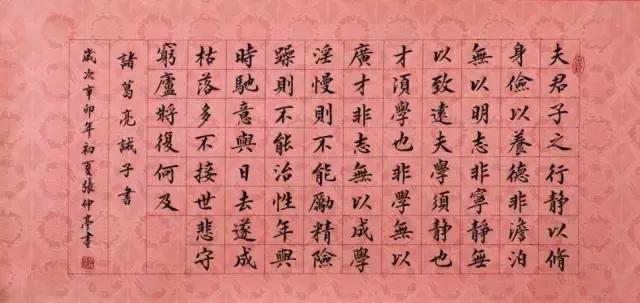 夫君子之行靜以脩
身儉以養德非澹泊
無以明志非寧靜無
以致遠夫學須靜也
才湏學也非學無以
廣才非志無以成學
淫慢則不能勵精險
躁則不能治性年與
時馳意與日去遂成
枯落多不接世悲守
窮廬將復何及
諸葛亮誡子書
歲次辛卯年初夏張仲亭書